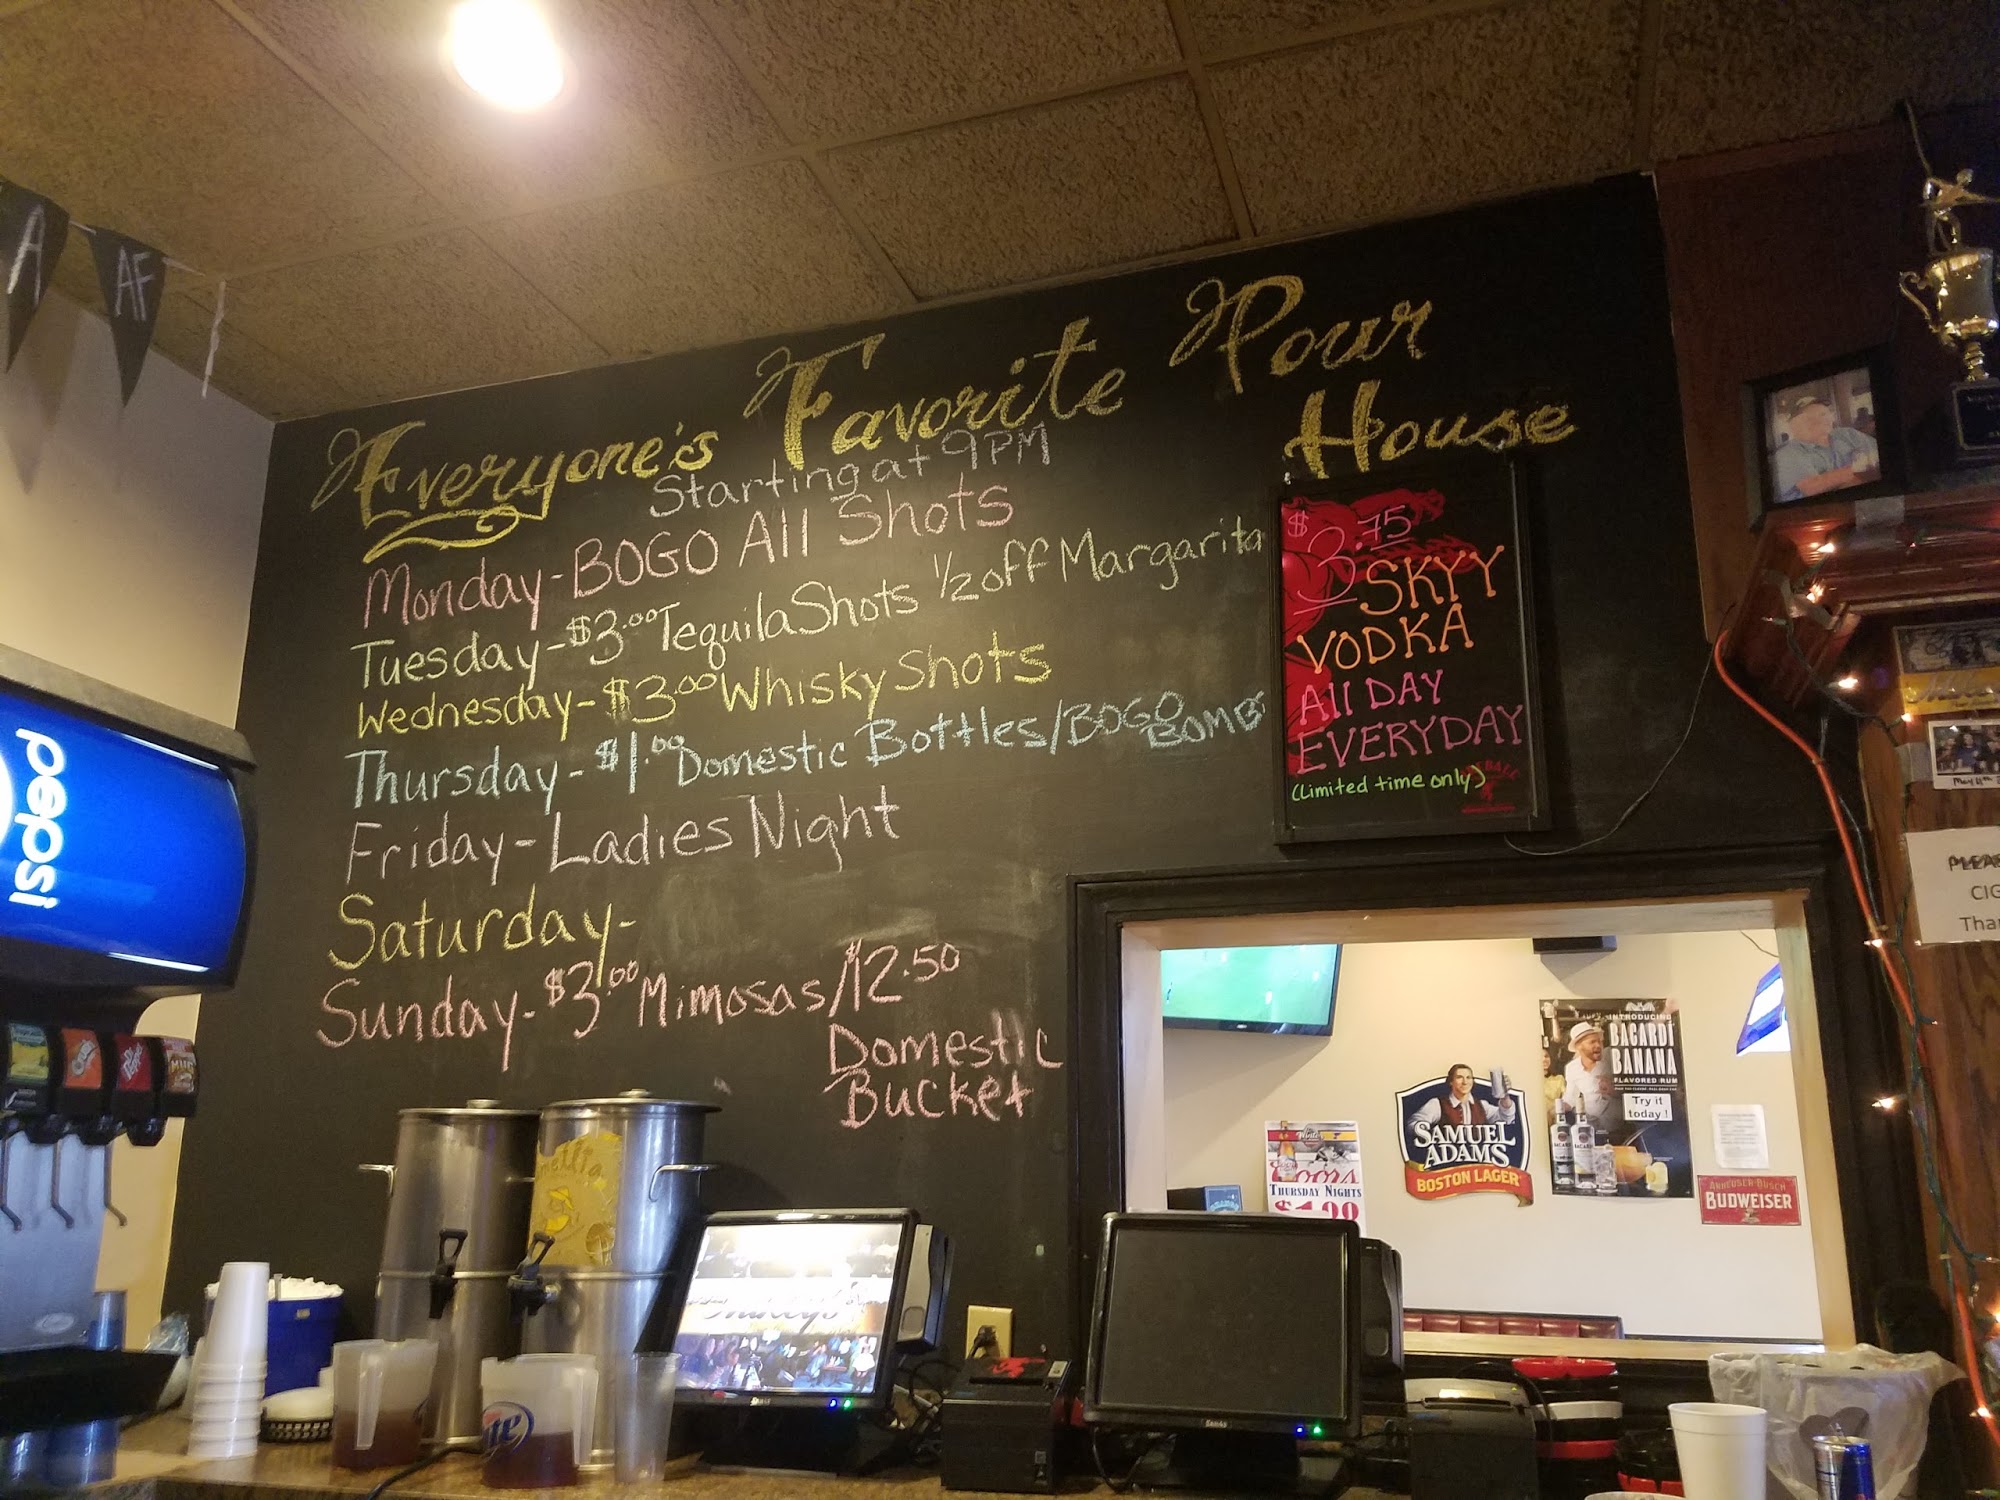 Everyone's Favorite Pour
House
Starting at 9PM
Monday-BOGO All Shots
Tuesday-$3.00 Tequila Shots 1/2 off Margarita
Wednesday-$3.00 Whisky Shots
Thursday-$1.00 Domestic Bottles/BOGO
BOMBS
Friday-Ladies Night
Saturday-
Sunday-$3.00 Mimosas/$12.50
Domestic
Bucket
$3.75
SKYY
VODKA
All DAY
EVERYDAY
(Limited time only)
A
AF
pepsi
Crush
Dr Pepper
MUG
INTRODUCING
BACARDI
BANANA
FLAVORED RUM
Try it
today!
BACARDI
SAMUEL
ADAMS
BOSTON LAGER
Coors
THURSDAY NIGHTS
$1.00
ANHEUSER-BUSCH
BUDWEISER
PLEAS
CIG
Than
May 11th
Lite